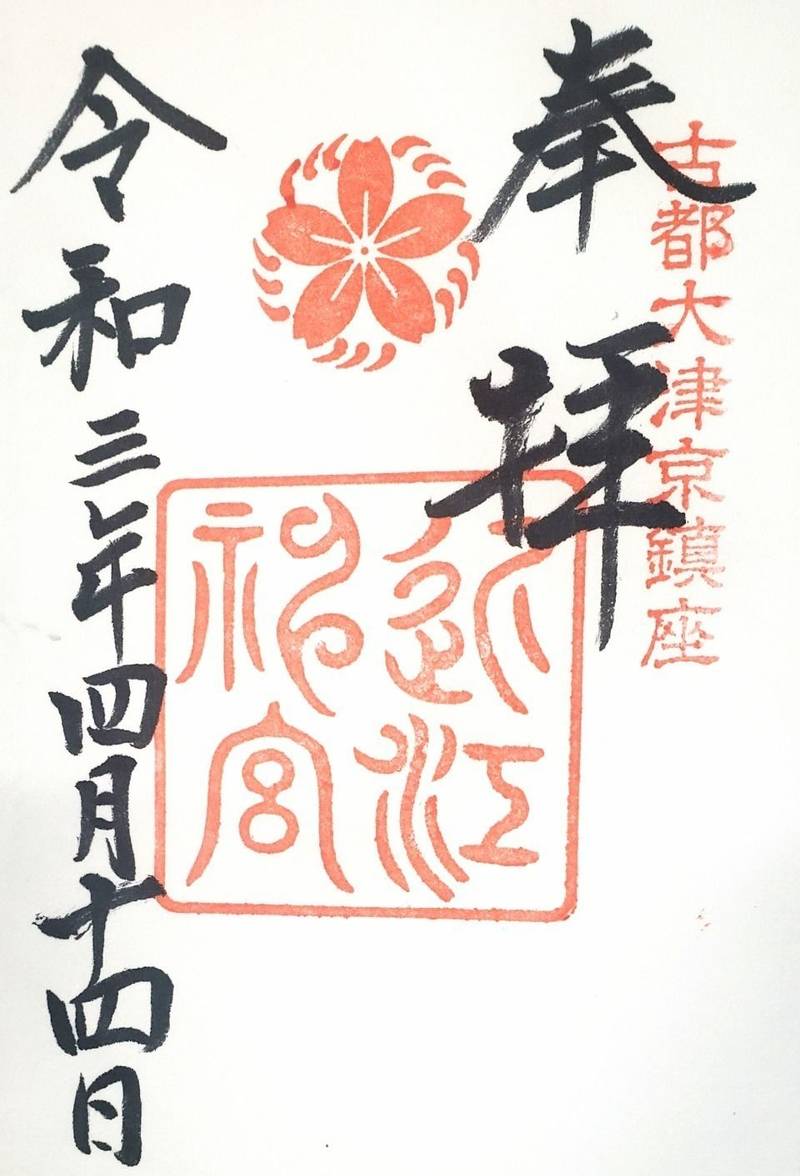 古都大津京鎮座
奉拝
近江
神宮
令和三年四月十四日